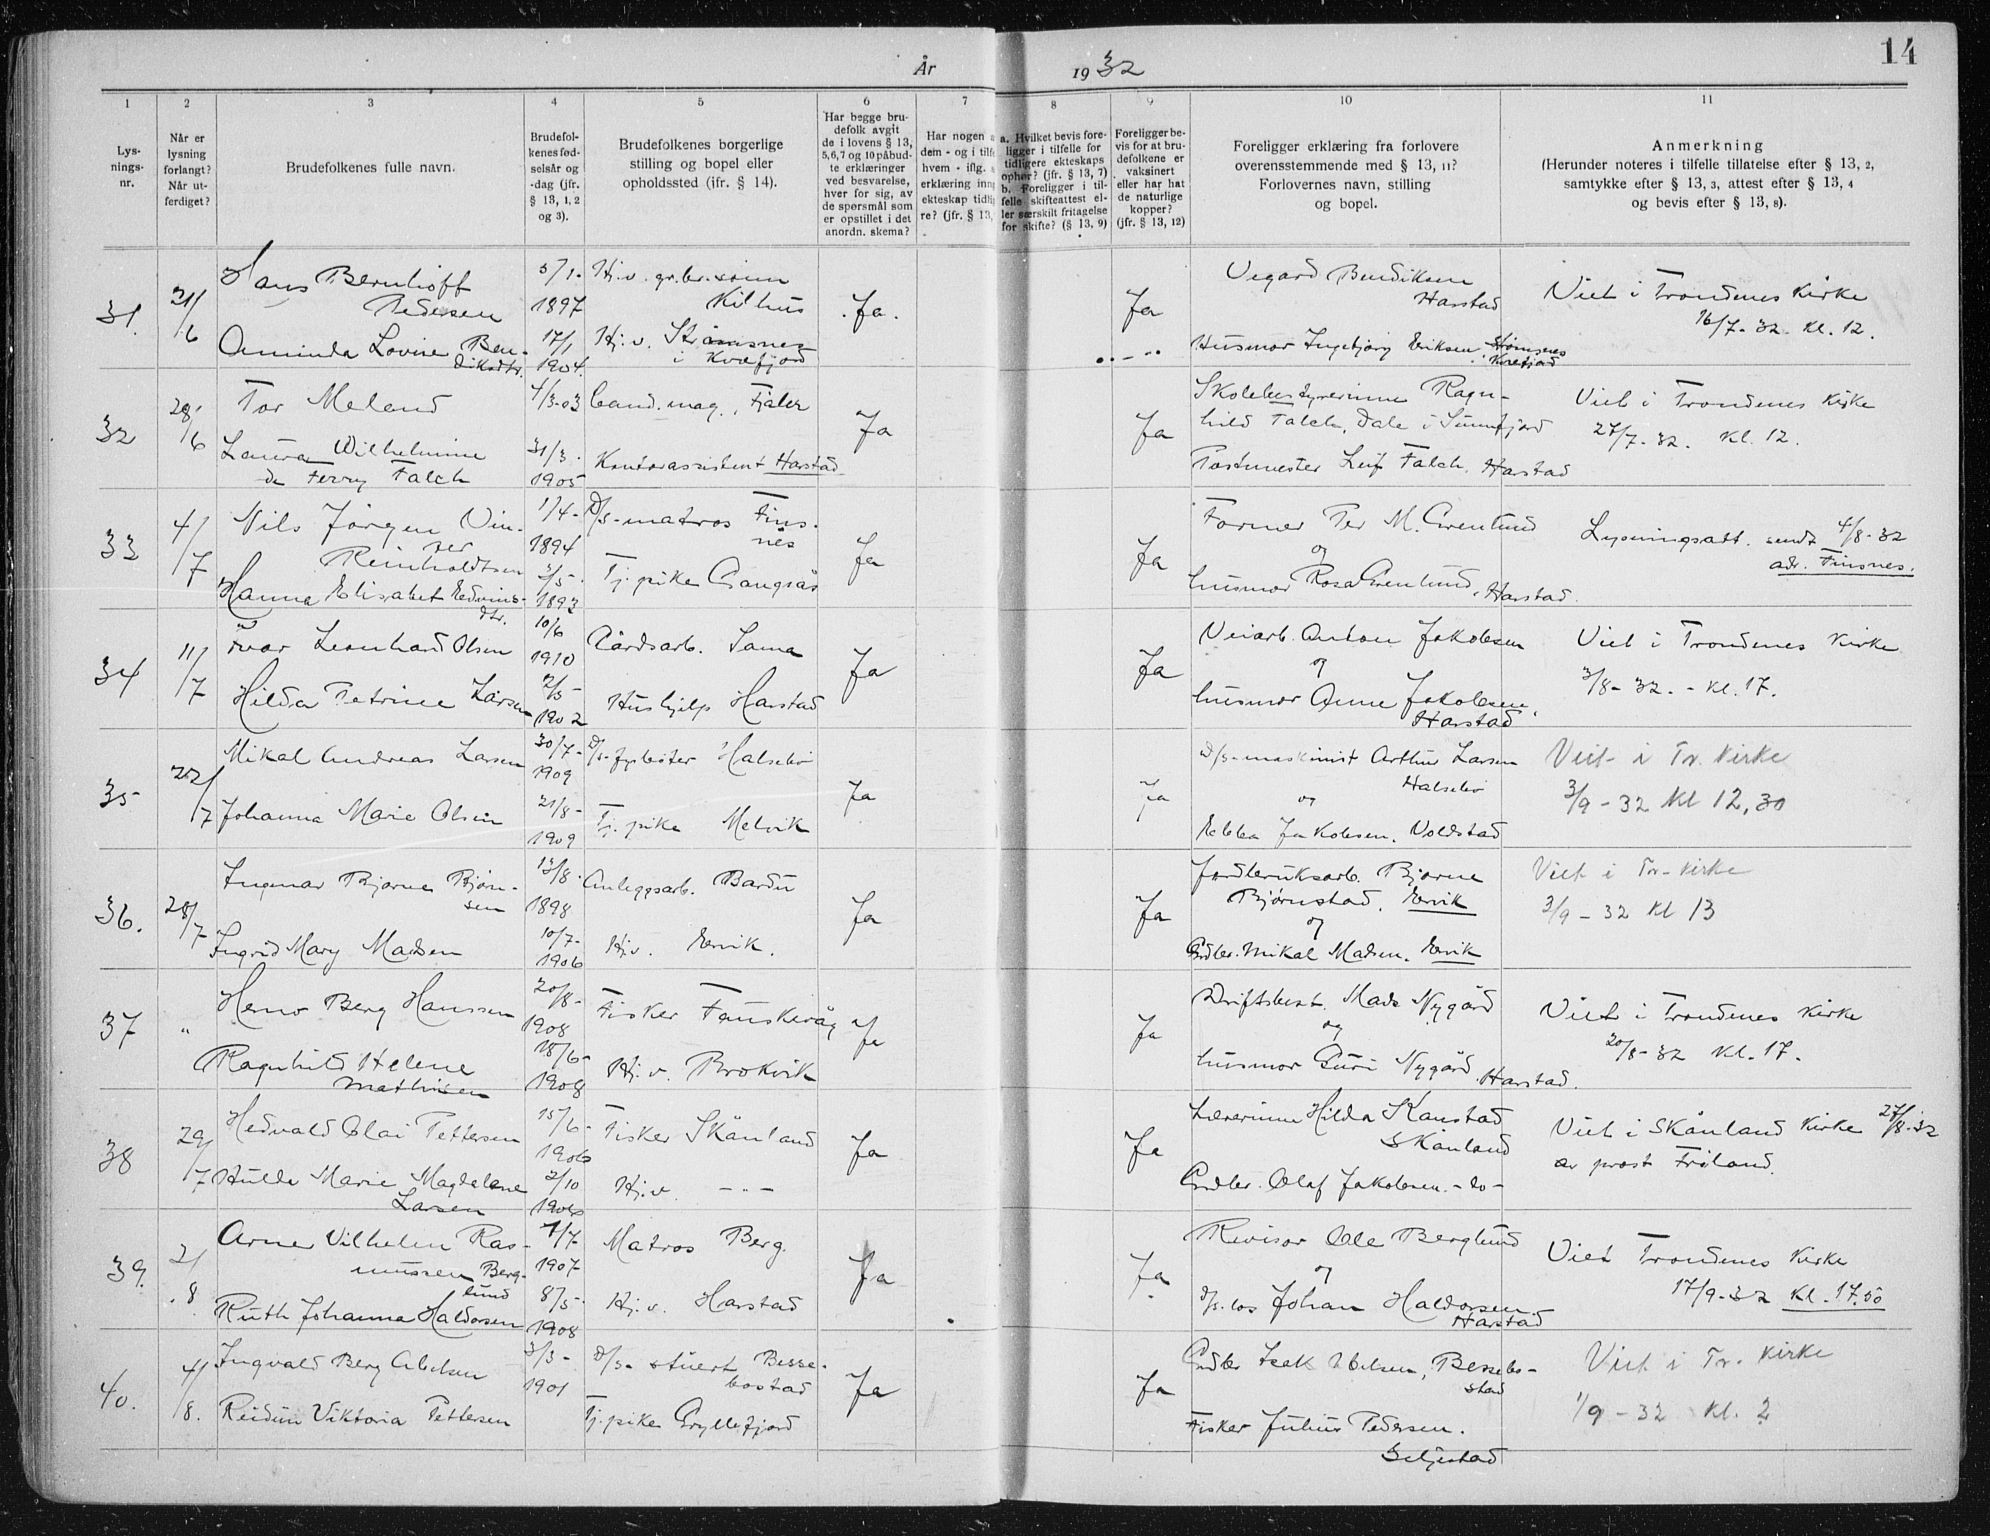 14
År 1932
1 2 3 4 5 6 7 8 9 10 11
Lys-
nings-
nr.
Når er
lysning
forlangt?
Når ut-
ferdiget?
Brudefolkenes fulle navn.
Brudefol-
kenes fød-
selsår og
-dag (jfr.
§ 13, 1, 2
og 3).
Brudefolkenes borgerlige
stilling og bopel eller
opholdssted (jfr. § 14).
Har begge bru-
defolk avgit
de i lovens § 13,
5,6,7 og 10 påbud-
te erklæringer
ved besvarelse,
hver for sig, av
de spørsmål som
er opstillet i det
anordn. skema?
Har nogen a
dem - og i tilfe
hvem - iflg. s
erklæring inng
ekteskap tidlig
re? (jfr. § 13,
a. Hvilket bevis fore-
ligger i tilfelle for
tidligere ekteskaps
ophør? (jfr. § 13, 7)
b. Foreligger i til-
felle skifteattest el-
ler særskilt fritagelse
for skifte? (§ 13, 9)
Foreligger be-
vis for at bru-
defolkene er
vaksinert
eller har hat
de naturlige
kopper?
(jfr. § 13, 12)
Foreligger erklæring fra forlovere
overensstemmende med § 13, 11?
Forlovernes navn, stilling
og bopel.
Anmerkning
(Herunder noteres i tilfelle tillatelse efter § 13, 2,
samtykke efter § 13, 3, attest efter § 13, 4
og bevis efter § 13, 8).
31. 21/6 Hans Bernhoff Pedersen 5/1-1897 Hj.v. gr.br.sønn Kilhus Ja. Ja Vegard Bendiksen Harstad Viet i Trondenes Kirke 16/7-32 Kl. 12.
Aminda Lovise Ben-
diksdtr. 17/1 1904. Hj.v. Strømsnes i Kvæfjord Husmor Ingebjørg Eriksen Strømsnes Kvæfjord
32 28/6 Tor Meland 4/3-03 Cand. mag., Fjaler Ja Ja Skolebestyrerinne Ragn-
hild Falch, Dale i Sunnfjord Viet i Trondenes Kirke 27/7-32. Kl. 12.
Laura Wilhelmine
de Ferry Falch 31/3-1905 Kontorassistent Harstad Postmester Leif Falch, Harstad
33 4/7 Nils Jørgen Vin-
ter Reinholdtsen 1/4-1894 D/s-matros Fins-
nes Ja Ja Former Per M. Grenlund og Lysningsatt. sendt 4/8-32 adr. Finsnes.
Hanna Elisabet Edvins-
dtr. 2/5-1893 Tj.pike Gangsås husmor Rosa Grenlund, Harstad.
34 11/7 Ivar Leonhard Olsen 10/6 1910 Gårdsarb. Sama Ja Ja Veiarb. Anton Jakobsen og Viet i Trondenes Kirke 3/8-32.- Kl. 17.
Hilda Petrine Larsen 2/5-1902 Hushjelp Harstad husmor Anne Jakobsen, Harstad
35 22/7 Mikal Andreas Larsen 30/7-1909 D/s-fyrbøter Halsebø Ja Ja D/s-maskinist Arthur Larsen Halsebø og Viet i Tr. Kirke 3/9-32 Kl 12,30
Johanna Marie Olsen 21/8-1909 Tj.pike Melvik Ebba Jakobsen, Voldstad
36. 28/7 Ingemar Bjarne Bjørn-
sen 13/8-1898 Anleggsarb. Bardu Ja Ja Jordbruksarb. Bjarne Bjørnstad, Ervik og Viet i Tr-Kirke 3/9-32 Kl 13
Ingrid Mary Madsen 10/7-1906 Hj.v. Ervik. Grdbr. Mikal Madsen, Ervik
37 " Herno Berg Hanssen 20/8-1908 Fisker Fauskevåg Ja Ja Driftsbest. Mads Nygård og Viet i Trondenes Kirke 20/8-32 Kl. 17.
Ragnhild Helene
Mathisen 18/6-1908 Hj.v. Brokvik husmor Guri Nygård, Harstad.
38 29/7 Hedvald Olai Pettersen 15/6-1906 Fisker Skånland Ja Ja Lærerinne Hilda Kanstad Skånland Viet i Skånland Kirke 27/8-32
av prost Frøland.
Hulda Marie Magdalene
Larsen 2/10 1906 Hj.v. --- Grdbr. Olaf Jakobsen. -do-
39. 2/8 Arne Vilhelm Ras-
mussen Berg-
lund 7/7 1907 Matros Berg. Ja Ja Revisor Ole Berglund og Viet Trondenes Kirke 17/9-32 Kl. 17.00
Ruth Johanna Haldorsen 8/5-1908 Hj.v. Harstad D/s.los Johan Haldorsen Harstad
40. 4/8. Ingvald Berg Abelsen 3/3-1901 D/s-stuert Besse-
bostad Ja Ja Grdbr Isak Abelsen, Bessebo-
stad Viet i Tr. Kirke 1/9-32 Kl. 2
Reidun Viktoria Pettersen Tj.pike Gryllefjord Fisker Julius Pedersen.
Seljestad